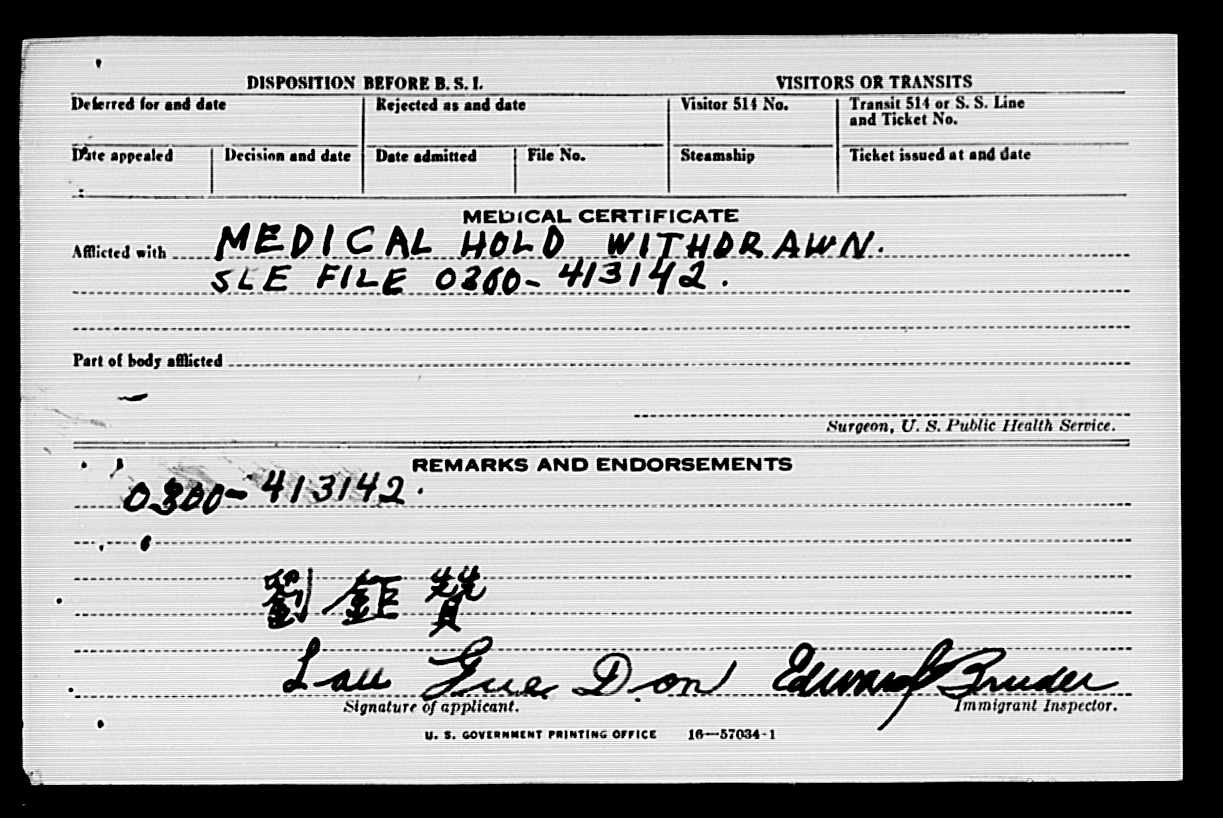 DISPOSITION BEFORE B. S. I. VISITORS OR TRANSITS
Deferred for and date Rejected as and date Visitor 514 No. Transit 514 or S. S. Line
and Ticket No.
Date appealed Decision and date Date admitted File No. Steamship Ticket issued at and date
MEDICAL CERTIFICATE
Afflicted with MEDICAL HOLD WITHDRAWN.
SEE FILE 0300-413142.
Part of body afflicted
Surgeon, U. S. Public Health Service.
REMARKS AND ENDORSEMENTS
0300-413142.
劉鉅贊
Lau Gue Don Edward Bruder
Signature of applicant. Immigrant Inspector.
U. S. GOVERNMENT PRINTING OFFICE 16—57034-1